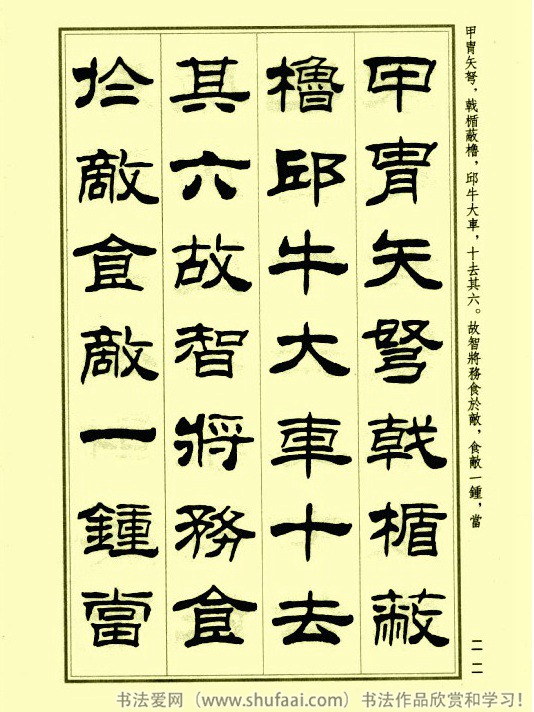 甲冑矢弩戟楯蔽
櫓邱牛大車十去
其六故智將務食
於敵食敵一鍾當
甲冑矢弩，戟楯蔽櫓，邱牛大車，十去其六。故智將務食於敵，食敵一鍾，當
二一
书法爱网（www.shufaai.com）书法作品欣赏和学习！